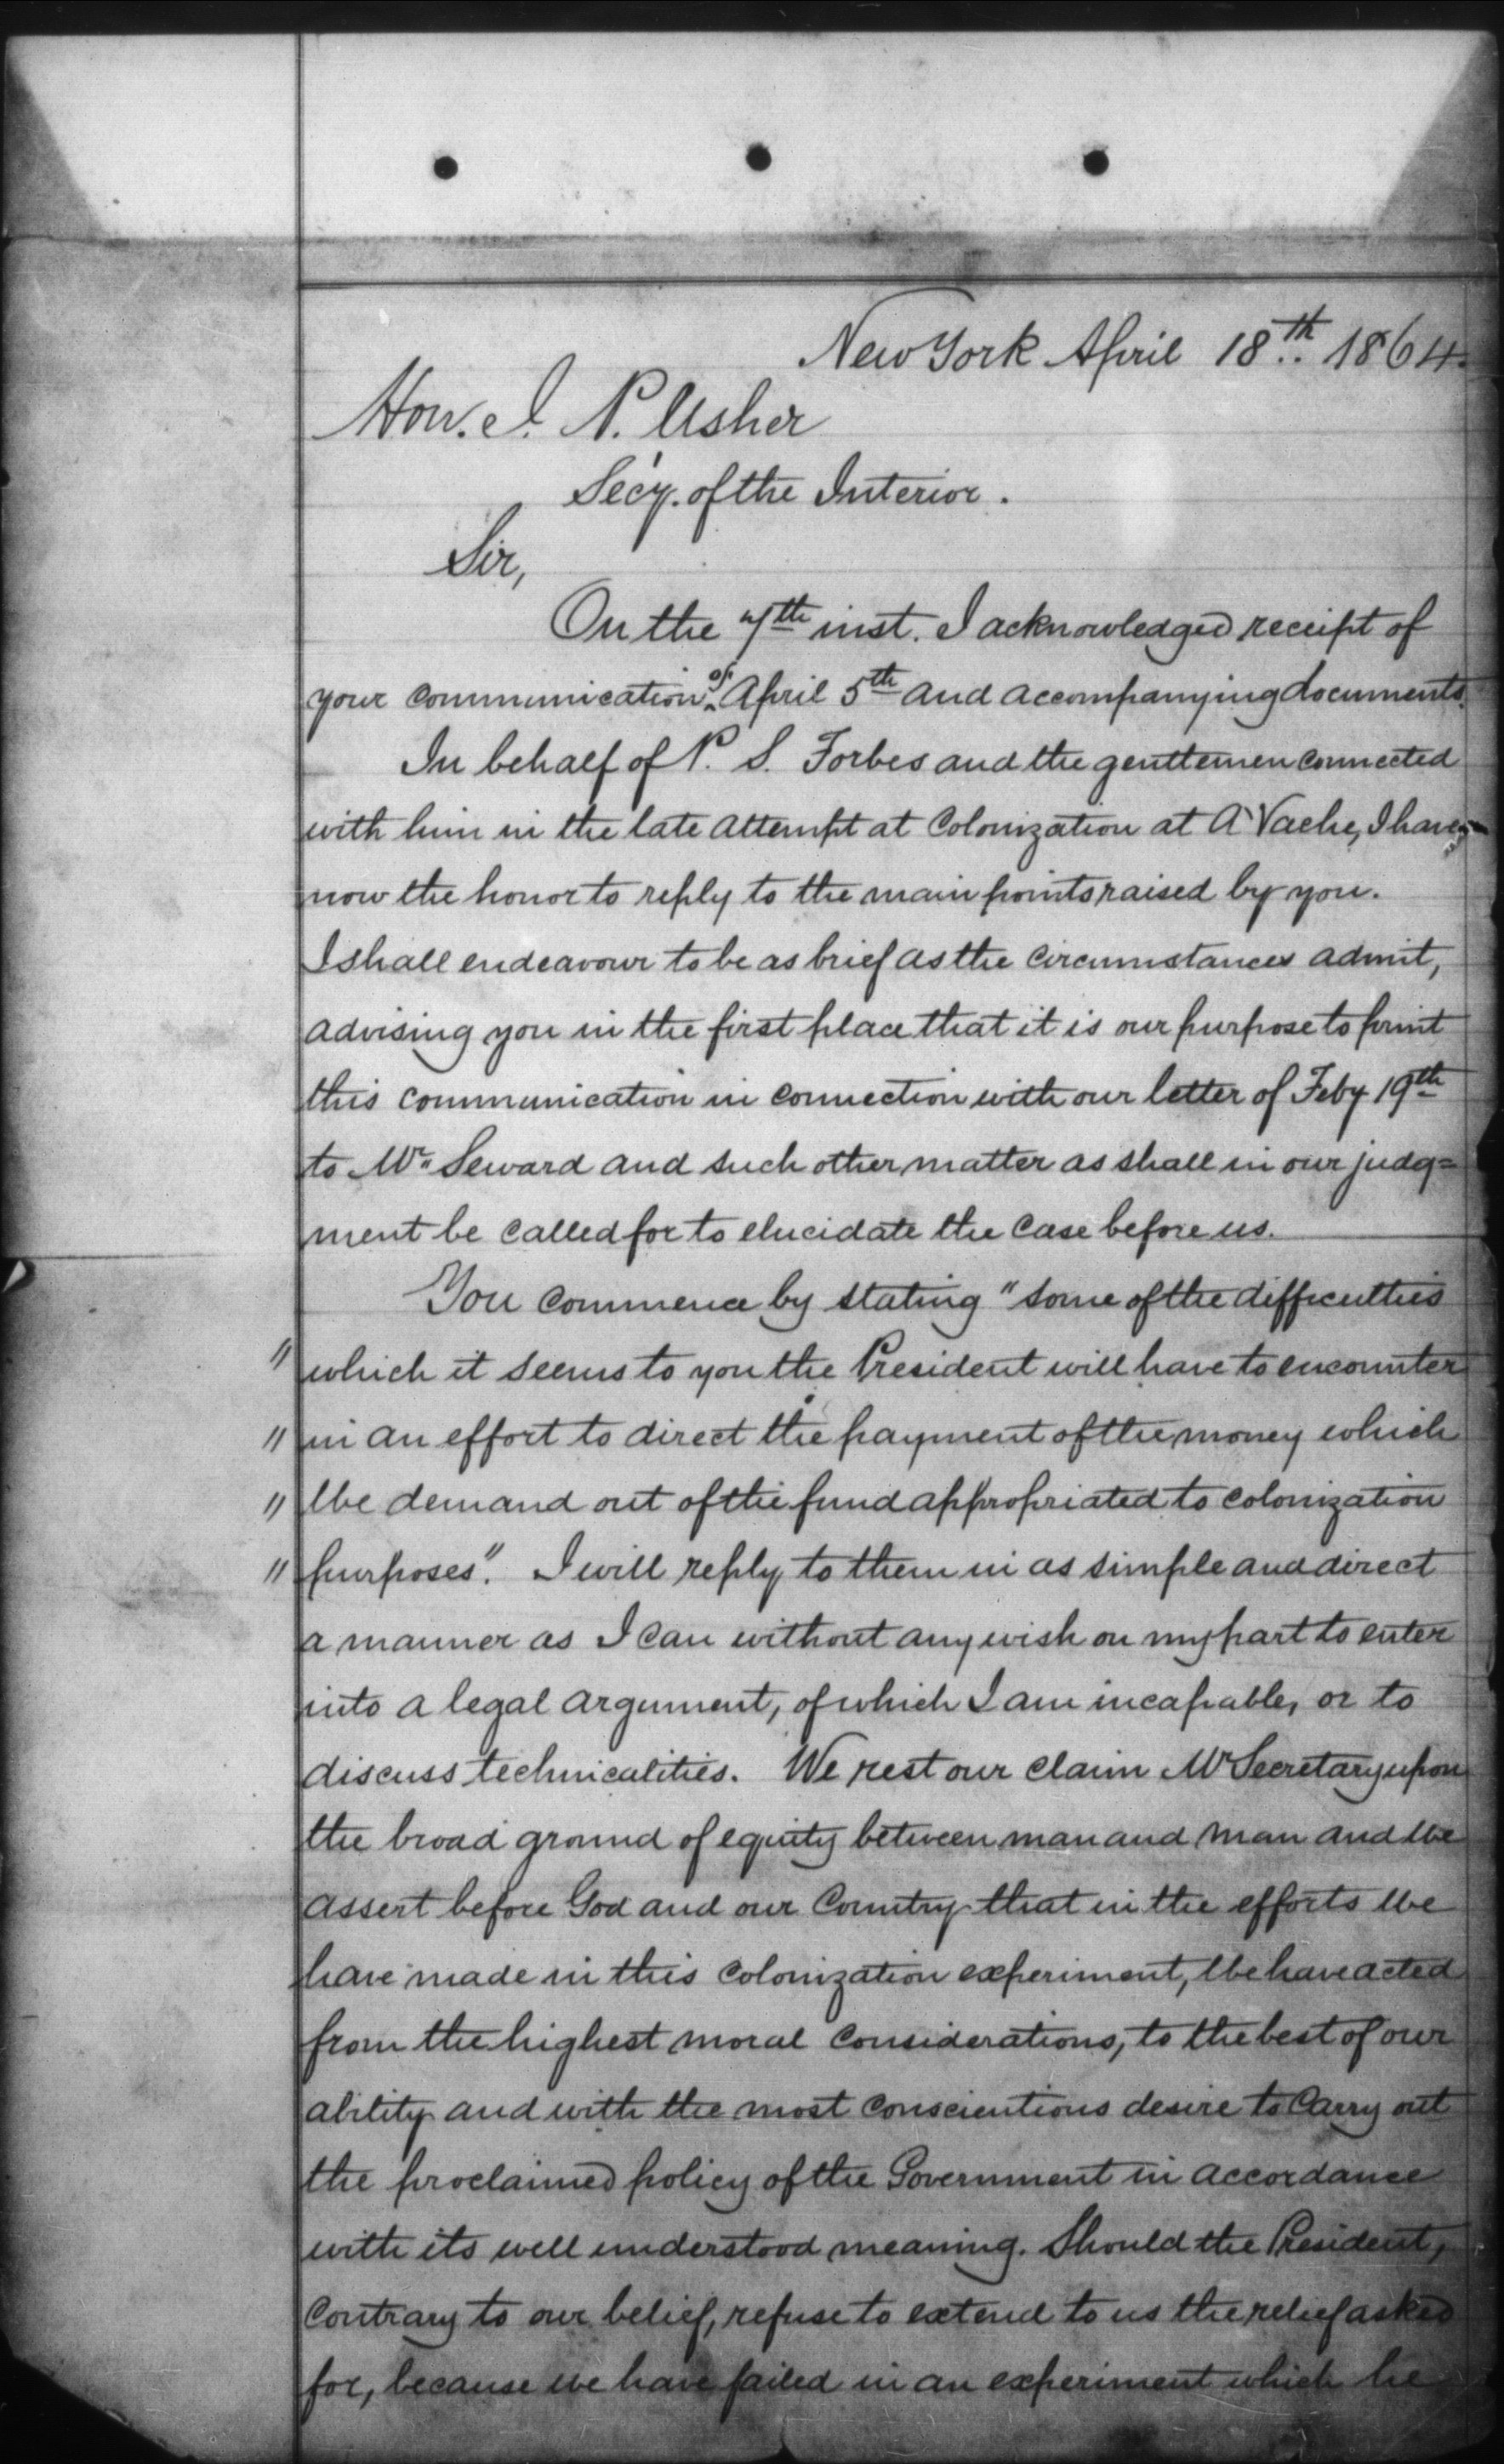 New York April 18th. 1864.
Hon. J. P. Usher
Secy. of the Interior.
Sir,
On the 7th inst. I acknowledged receipt of
your communication of April 5th and accompanying documents.
In behalf of P. S. Forbes and the gentlemen connected
with him in the late attempt at Colonization at A'Vache, I have
now the honor to reply to the main points raised by you.
I shall endeavour to be as brief as the circumstances admit,
advising you in the first place that it is our purpose to print
this communication in connection with our letter of Feby 19th
to Mr. Seward and such other matter as shall in our judg=
ment be called for to elucidate the case before us.
You commence by stating "some of the difficulties
" which it seems to you the President will have to encounter
" in an effort to direct the payment of the money which
" we demand out of the fund appropriated to colonization
" purposes". I will reply to them in as simple and direct
a manner as I can without any wish on my part to enter
into a legal argument, of which I am incapable, or to
discuss technicalities. We rest our claim Mr Secretary upon
the broad ground of equity between man and man and we
assert before God and our Country that in the efforts we
have made in this colonization experiment, we have acted
from the highest moral considerations, to the best of our
ability and with the most conscientious desire to carry out
the proclaimed policy of the Government in accordance
with its well understood meaning. Should the President,
contrary to our belief, refuse to extend to us the relief asked
for, because we have failed in an experiment which he